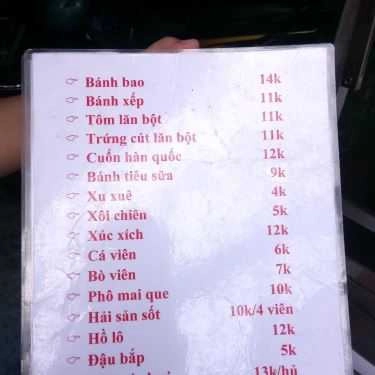 Bánh bao 14k
Bánh xếp 11k
Tôm lăn bột 11k
Trứng cút lăn bột 11k
Cuốn hàn quốc 12k
Bánh tiêu sữa 9k
Xu xuê 4k
Xôi chiên 5k
Xúc xích 12k
Cá viên 6k
Bò viên 7k
Phô mai que 10k
Hải sản sốt 10k/4 viên
Hồ lô 12k
Đậu bắp 5k
13k/hủ